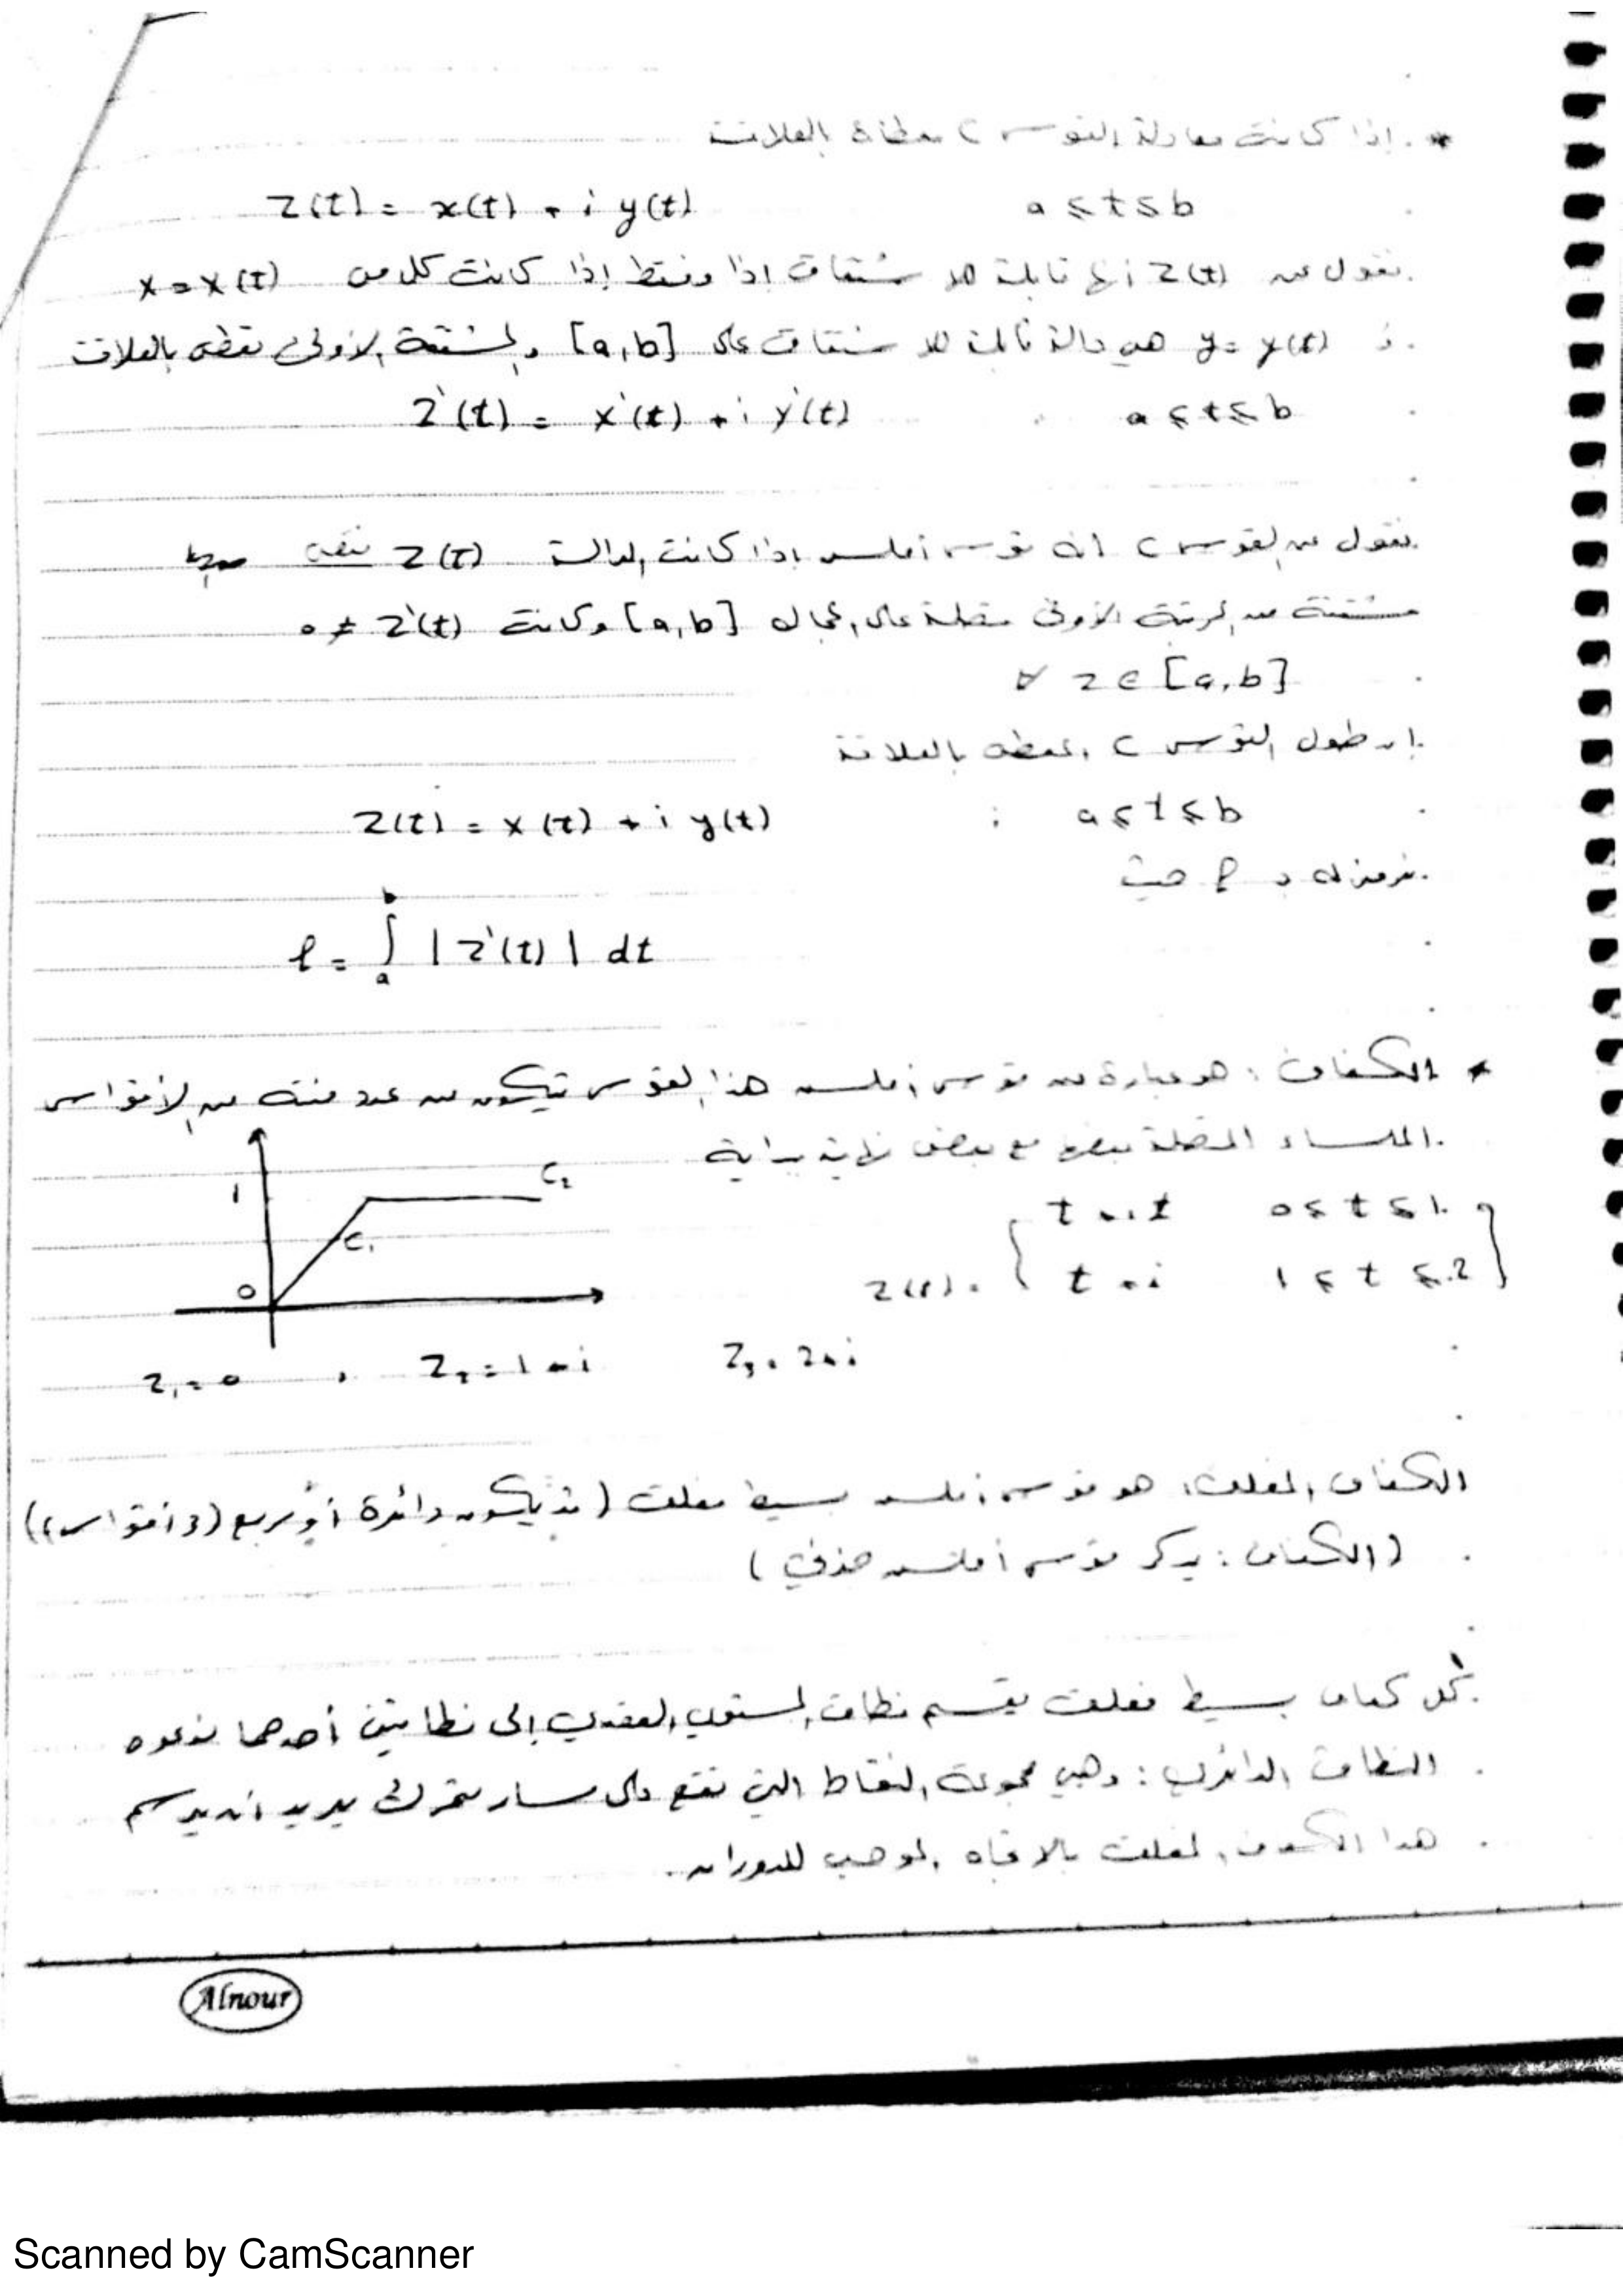 * إذا كانت معادلة القوس C معطاة بالعلاقة
z(t) = x(t) + i y(t) a ≤ t ≤ b
نقول عن z(t) أنها قابلة للاشتقاق إذا وفقط إذا كانت كل من x = x(t)
و y = y(t) هي دالة قابلة للاشتقاق على [a,b] والمشتقة الأولى تعطى بالعلاقة
z'(t) = x'(t) + i y'(t) a ≤ t ≤ b
نقول عن القوس C أنه قوس أملس إذا كانت الدالة z(t)
مشتقة من المرتبة الأولى متصلة على المجال [a,b] وكانت z'(t) ≠ 0
∀ z ∈ [a,b]
إن طول القوس C المعطى بالعلاقة
z(t) = x(t) + i y(t) ; a ≤ t ≤ b
نرمز له بـ ℓ حيث
ℓ = ∫_a^b | z'(t) | dt
* الكفاف : هو عبارة عن قوس أملس هذا القوس يتكون من عدد منته من الأقواس
الملساء المتصلة بعضها مع بعض نهاية بداية
1 C₂
C₁
0
z(t) = { t + it 0 ≤ t ≤ 1
t + i 1 ≤ t ≤ 2 }
z₁ = 0 , z₂ = 1 + i z₃ = 2 + i
الكفاف المغلق: هو قوس أملس بسيط مغلق (قد يكون دائرة أو مربع (و أقواس))
(الكفاف : يذكر قوس أملس)
كل كفاف بسيط مغلق يقسم نطاق المستوي العقدي إلى نطاقين أحدهما ندعوه
النطاق الداخلي : وهي مجموعة النقاط التي تقع على يسار متحرك يريد أن يرسم
هذا الكفاف المغلق بالاتجاه الموجب للدوران.
Alnour
Scanned by CamScanner